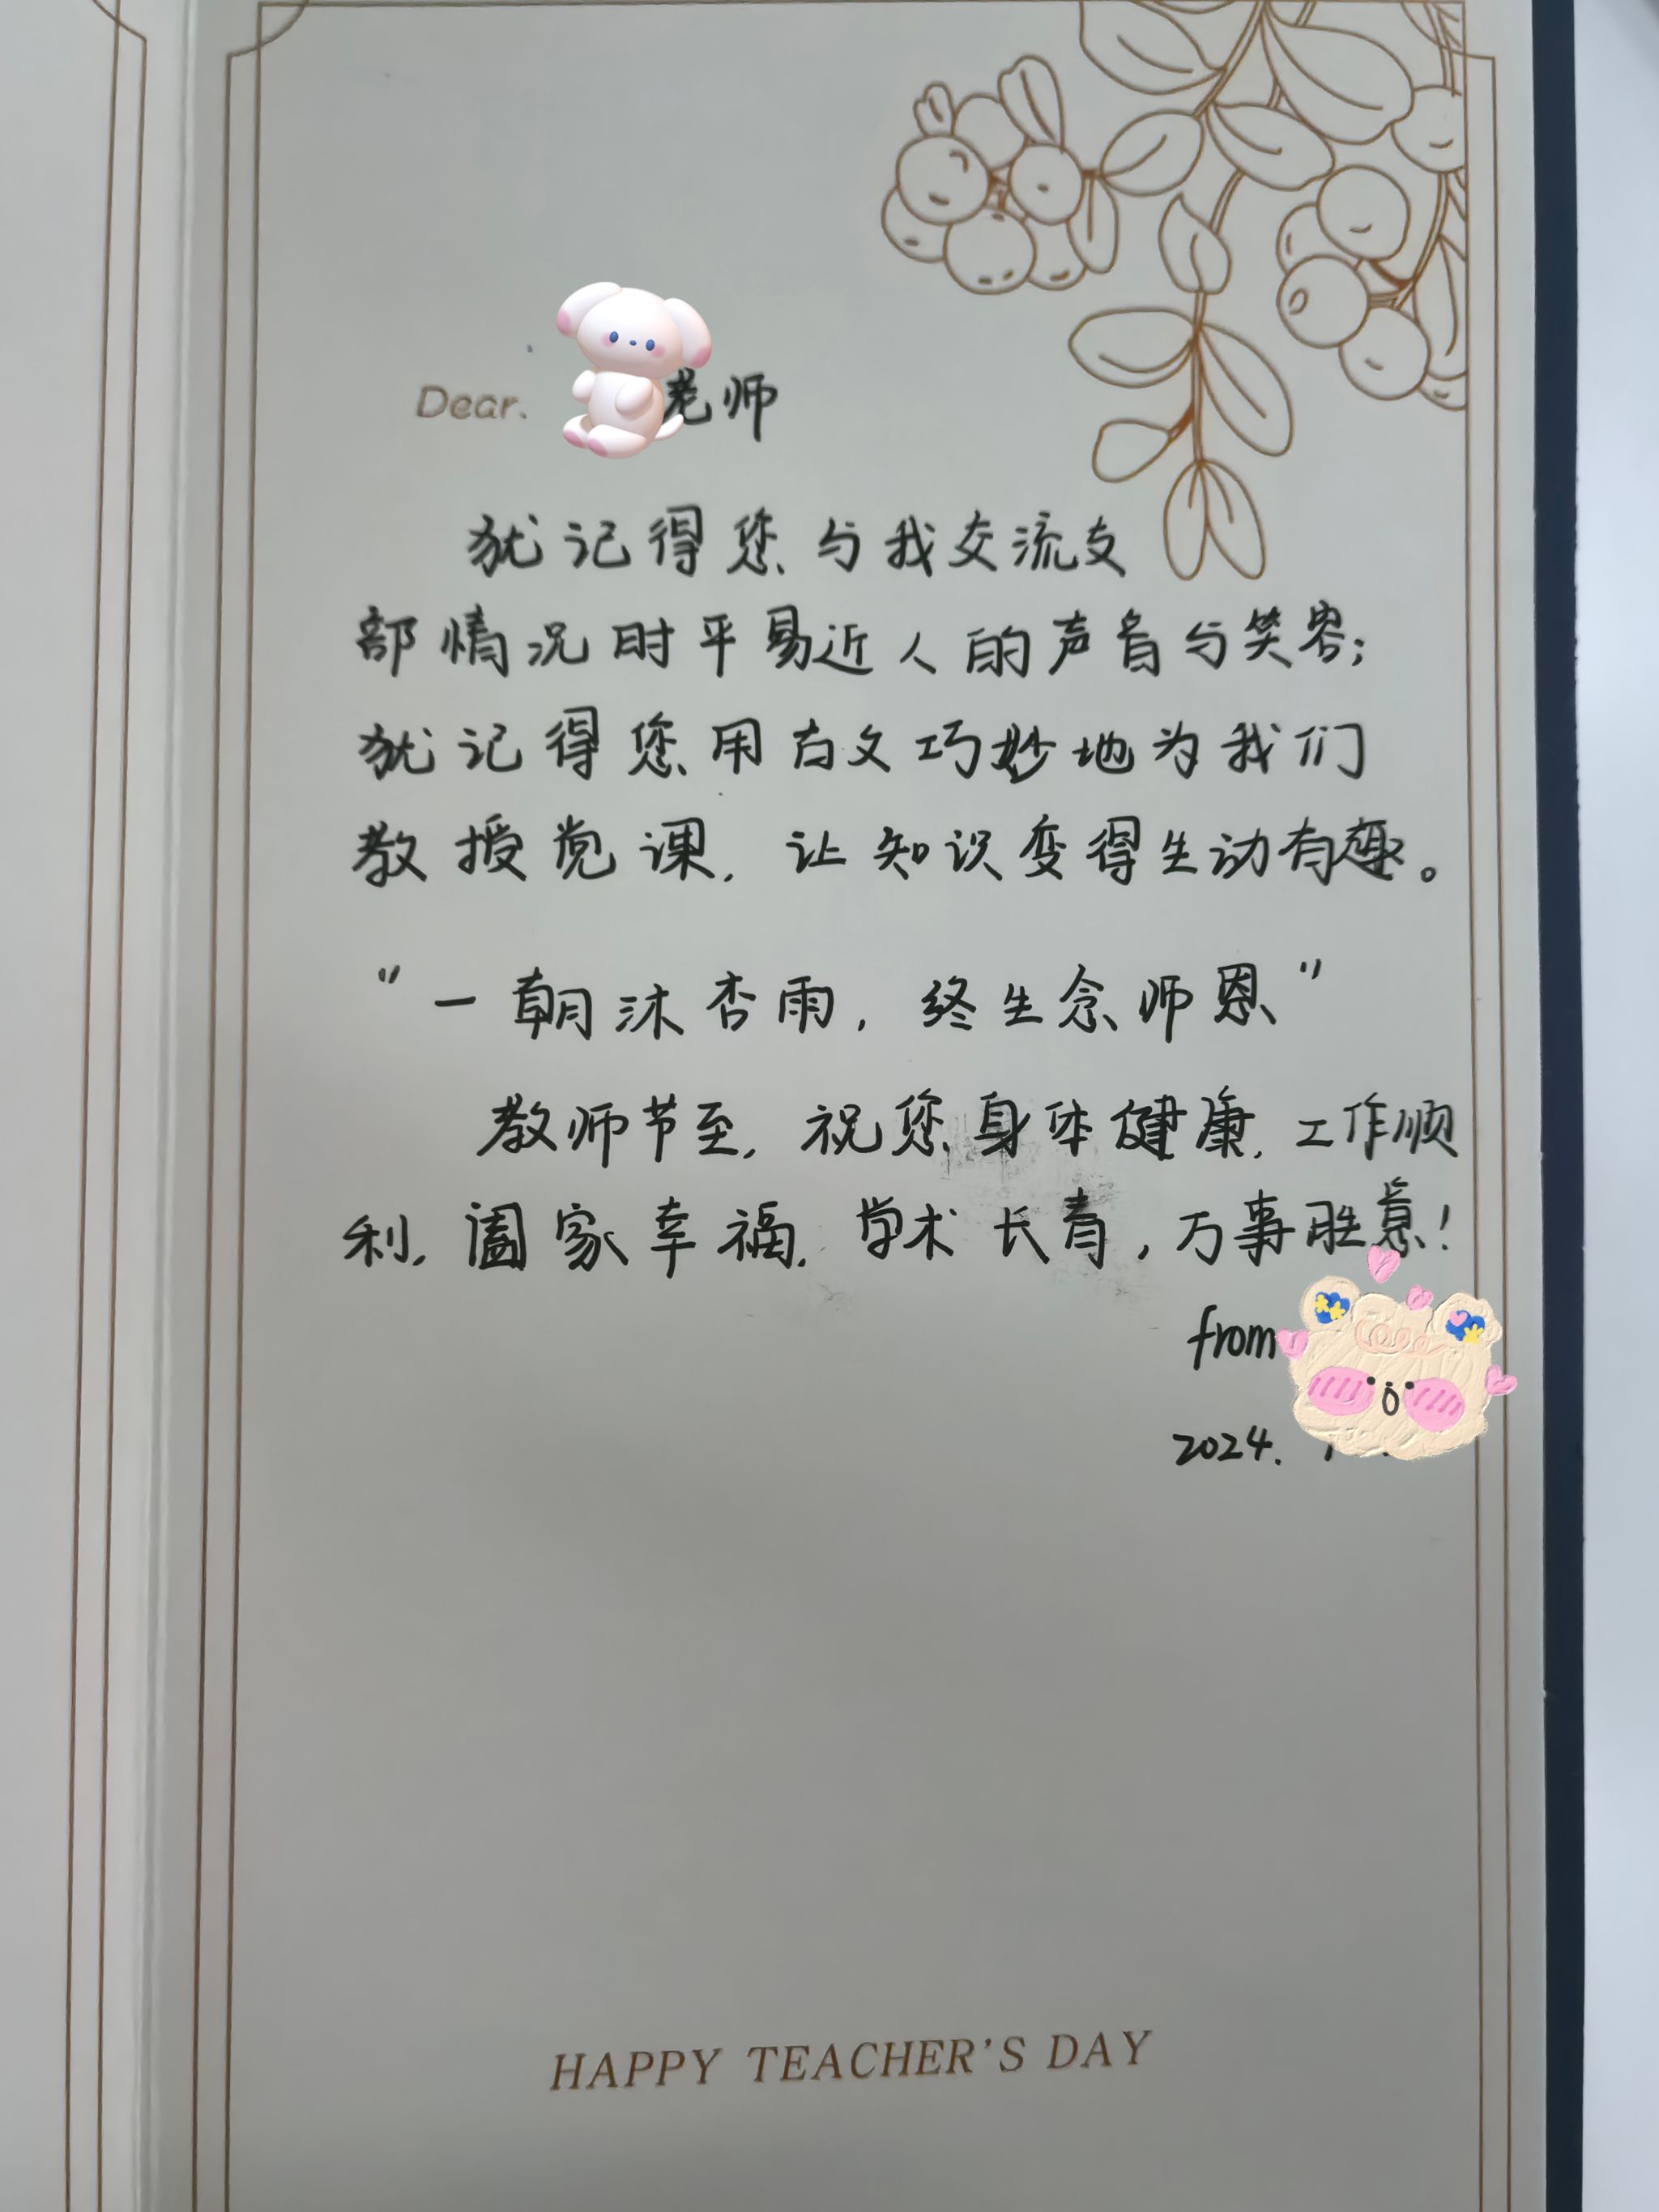 Dear. 老师
犹记得您与我交流支
部情况时平易近人的声音与笑容；
犹记得您用古文巧妙地为我们
教授党课，让知识变得生动有趣。
“一朝沐杏雨，终生念师恩”
教师节至，祝您身体健康，工作顺
利，阖家幸福，学术长青，万事胜意！
from
2024.
HAPPY TEACHER'S DAY